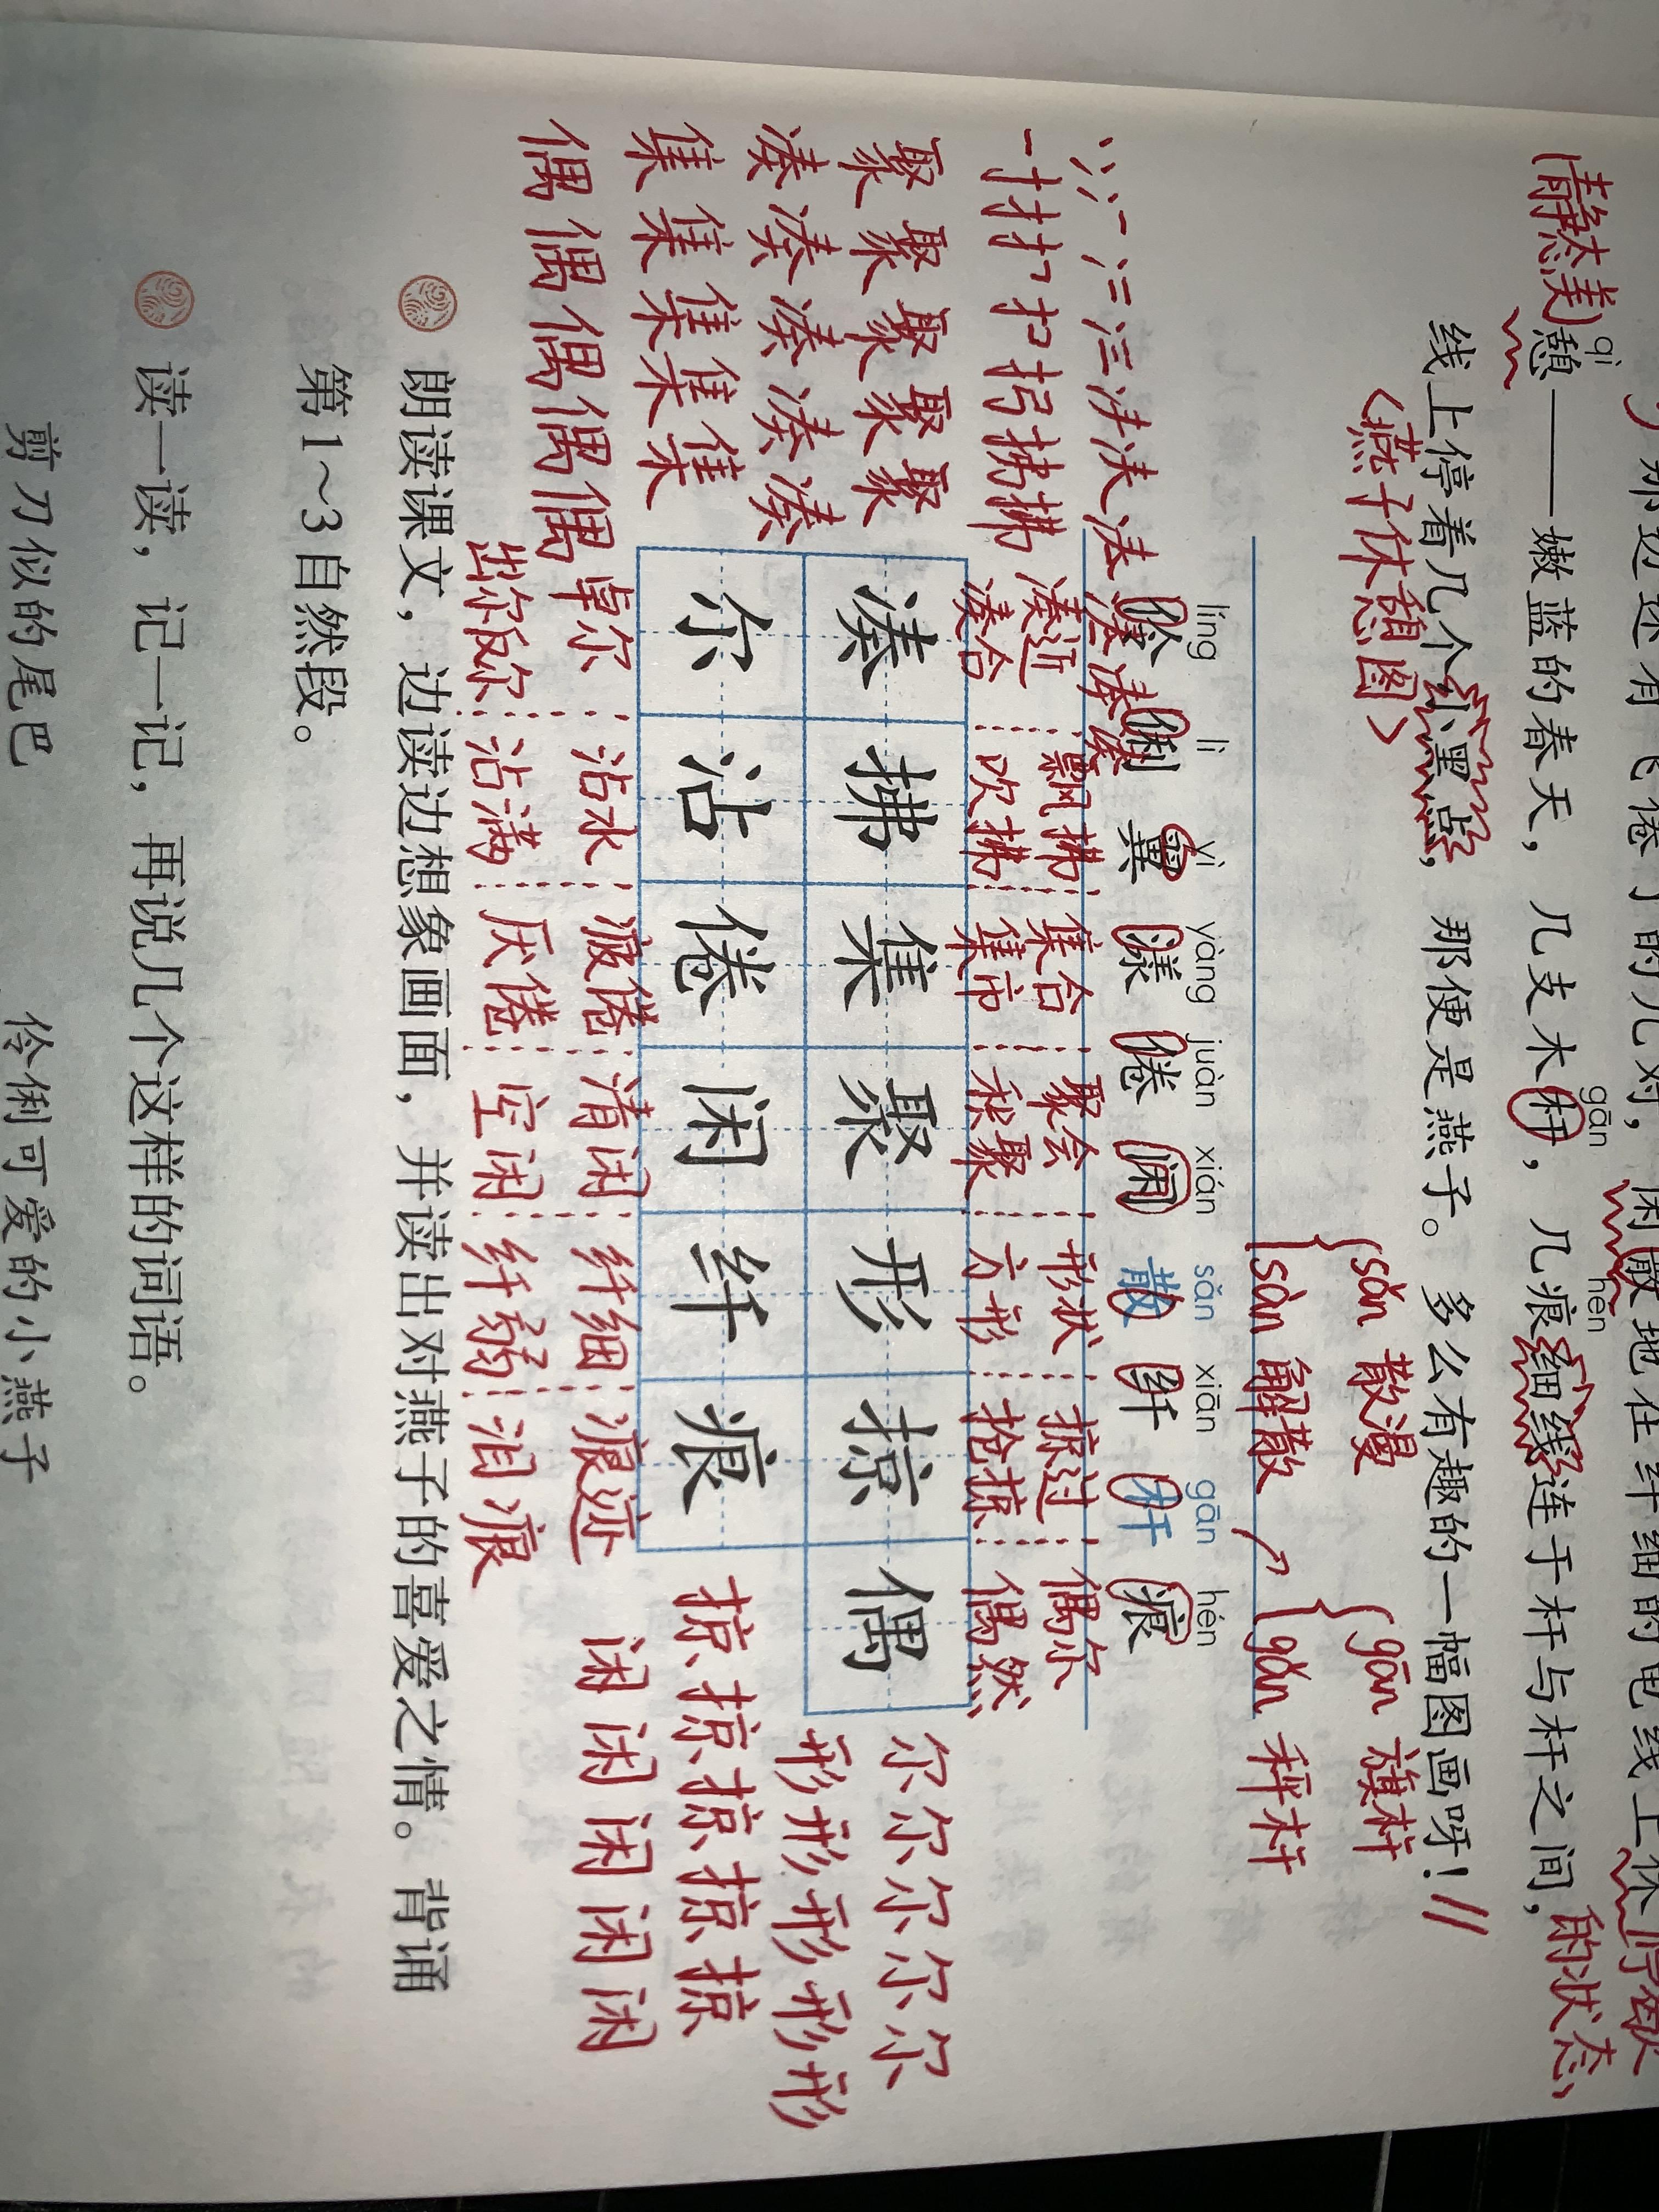 那边还有飞倦了的几对，闲散地在纤细的电线上休 停歇
(静态美) 憩——嫩蓝的春天，几支木杆，几痕细线连于杆与杆之间， 的状态
qì gān hén
线上停着几个小黑点，那便是燕子。多么有趣的一幅图画呀！//
〈燕子休憩图〉
sǎn 散漫 gān 旗杆
sàn 解散 gǎn 秤杆
líng lì yì yàng juàn xián sǎn xiān gān hén
伶 俐 翼 漾 倦 闲 散 纤 杆 痕
凑近 飘拂 集合 聚会 形状 掠过 偶尔
凑合 吹拂 集市 积聚 方形 抢掠 偶然
凑 拂 集 聚 形 掠 偶
尔 沾 倦 闲 纤 痕
卓尔 沾水 疲倦 清闲 纤细 痕迹
出尔反尔 沾满 厌倦 空闲 纤弱 泪痕
聚 聚 聚 聚 聚
凑 凑 凑 凑 凑
集 集 集 集
偶 偶 偶 偶 偶
尔 尔 尔 尔 尔
形 形 形 形 形
掠 掠 掠 掠 掠
闲 闲 闲 闲 闲
朗读课文，边读边想象画面，并读出对燕子的喜爱之情。背诵
第1～3自然段。
读一读，记一记，再说几个这样的词语。
剪刀似的尾巴 伶俐可爱的小燕子